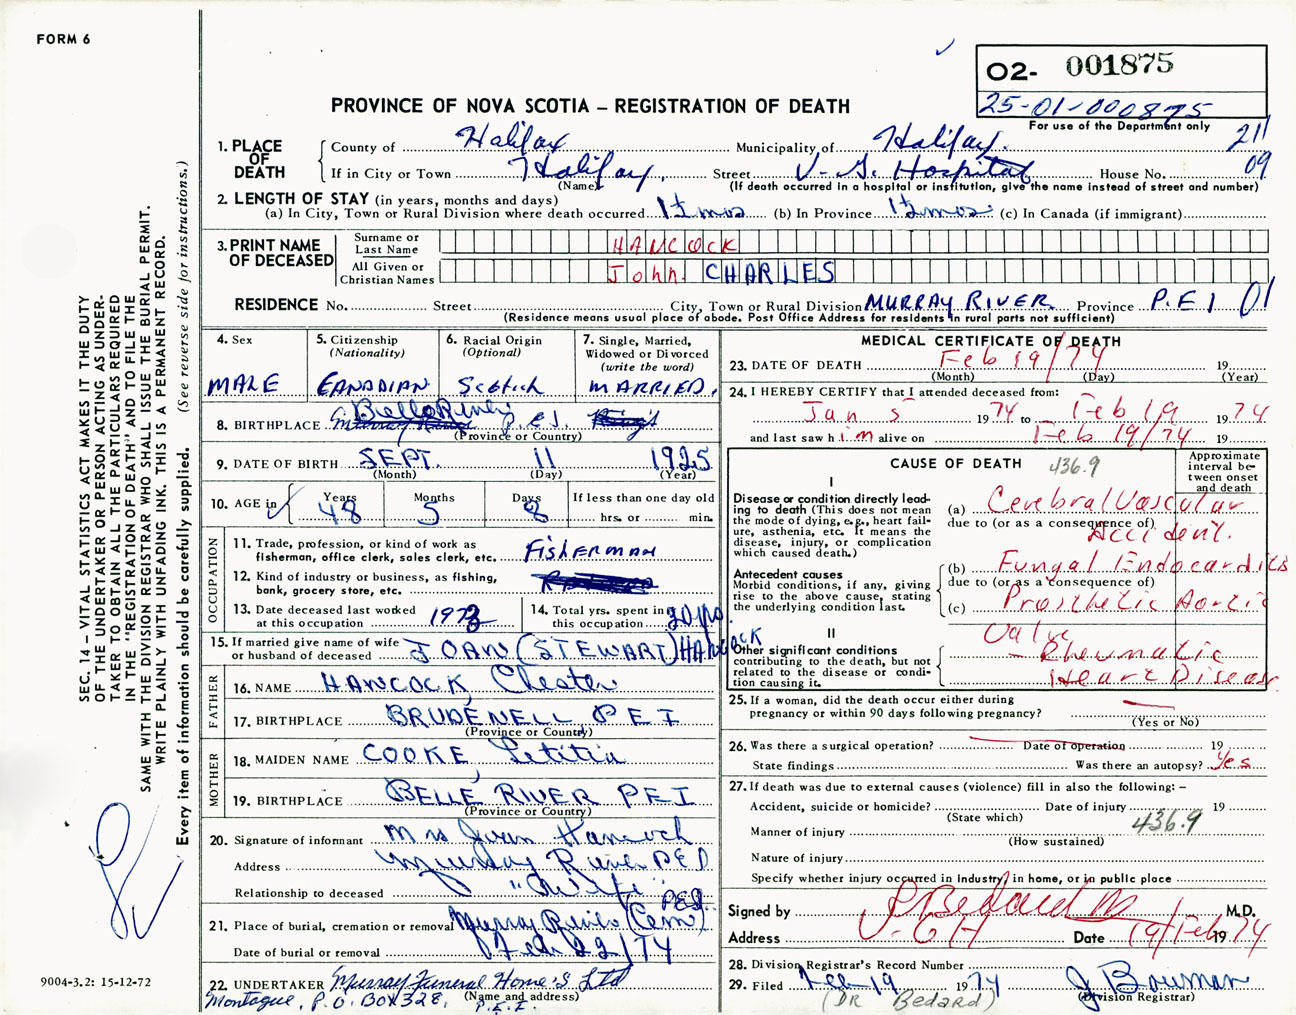 FORM 6
O2- 001875
25-01-000875
For use of the Department only
211
09
PROVINCE OF NOVA SCOTIA – REGISTRATION OF DEATH
1. PLACE OF DEATH
County of Halifax Municipality of Halifax.
If in City or Town Halifax. Street V.G. Hospital House No.
(Name) (If death occurred in a hospital or institution, give the name instead of street and number)
2. LENGTH OF STAY (in years, months and days)
(a) In City, Town or Rural Division where death occurred 1½ mos (b) In Province 1½ mos (c) In Canada (if immigrant)
3. PRINT NAME OF DECEASED
Surname or Last Name HANCOCK
All Given or Christian Names John CHARLES
RESIDENCE No. Street City, Town or Rural Division MURRAY RIVER Province P.E I 01
(Residence means usual place of abode. Post Office Address for residents in rural parts not sufficient)
4. Sex
MALE
5. Citizenship
(Nationality)
CANADIAN
6. Racial Origin
(Optional)
Scotich
7. Single, Married, Widowed or Divorced
(write the word)
MARRIED.
8. BIRTHPLACE Belle River P.E.I
(Province or Country)
9. DATE OF BIRTH SEPT. 11 1925
(Month) (Day) (Year)
10. AGE in
Years 48
Months 5
Days 8
If less than one day old
hrs. or min.
OCCUPATION
11. Trade, profession, or kind of work as fisherman, office clerk, sales clerk, etc. FISHERMAN
12. Kind of industry or business, as fishing, bank, grocery store, etc.
13. Date deceased last worked at this occupation 1973
14. Total yrs. spent in this occupation 20 yrs.
15. If married give name of wife or husband of deceased JOAN (STEWART) HANCOCK
FATHER
16. NAME HANCOCK, Chester
17. BIRTHPLACE BRUDENELL, P E I
(Province or Country)
MOTHER
18. MAIDEN NAME COOKE, Letitia
19. BIRTHPLACE BELLE RIVER PEI
(Province or Country)
20. Signature of informant Mrs Joan Hancock
Address Murray River PEI
Relationship to deceased "Wife"
21. Place of burial, cremation or removal Murray River (Cem) PEI.
Date of burial or removal Feb 22/74
22. UNDERTAKER Murray Funeral Home's Ltd
(Name and address)
Montague, P.O. Box 328, P.E.I.
MEDICAL CERTIFICATE OF DEATH
23. DATE OF DEATH Feb 19/74 19
(Month) (Day) (Year)
24. I HEREBY CERTIFY that I attended deceased from:
Jan 5 19 74 to Feb 19 19 74
and last saw him alive on Feb 19/74 19
CAUSE OF DEATH 436.9
Approximate interval between onset and death
I
Disease or condition directly leading to death (This does not mean the mode of dying, e.g., heart failure, asthenia, etc. It means the disease, injury, or complication which caused death.)
(a) Cerebral Vascular
due to (or as a consequence of)
Accident.
Antecedent causes
Morbid conditions, if any, giving rise to the above cause, stating the underlying condition last.
(b) Fungal Endocarditis
due to (or as a consequence of)
(c) Prosthetic Aortic
Valve
II
Other significant conditions contributing to the death, but not related to the disease or condition causing it.
– Rheumatic
Heart Disease.
25. If a woman, did the death occur either during pregnancy or within 90 days following pregnancy?
(Yes or No)
26. Was there a surgical operation? Date of operation 19
State findings Was there an autopsy? Yes
27. If death was due to external causes (violence) fill in also the following: –
Accident, suicide or homicide? Date of injury 19
(State which)
Manner of injury 436.9
(How sustained)
Nature of injury
Specify whether injury occurred in industry, in home, or in public place
Signed by P Bedard M.D.
Address V.G H Date 19/Feb 19 74
28. Division Registrar's Record Number
29. Filed Feb 19 19 74 J Bowman
(DR Bedard) (Division Registrar)
SEC. 14 – VITAL STATISTICS ACT MAKES IT THE DUTY
OF THE UNDERTAKER OR PERSON ACTING AS UNDER-
TAKER TO OBTAIN ALL THE PARTICULARS REQUIRED
IN THE "REGISTRATION OF DEATH" AND TO FILE THE
SAME WITH THE DIVISION REGISTRAR WHO SHALL ISSUE THE BURIAL PERMIT.
WRITE PLAINLY WITH UNFADING INK. THIS IS A PERMANENT RECORD.
Every item of information should be carefully supplied. (See reverse side for instructions.)
9004-3.2: 15-12-72